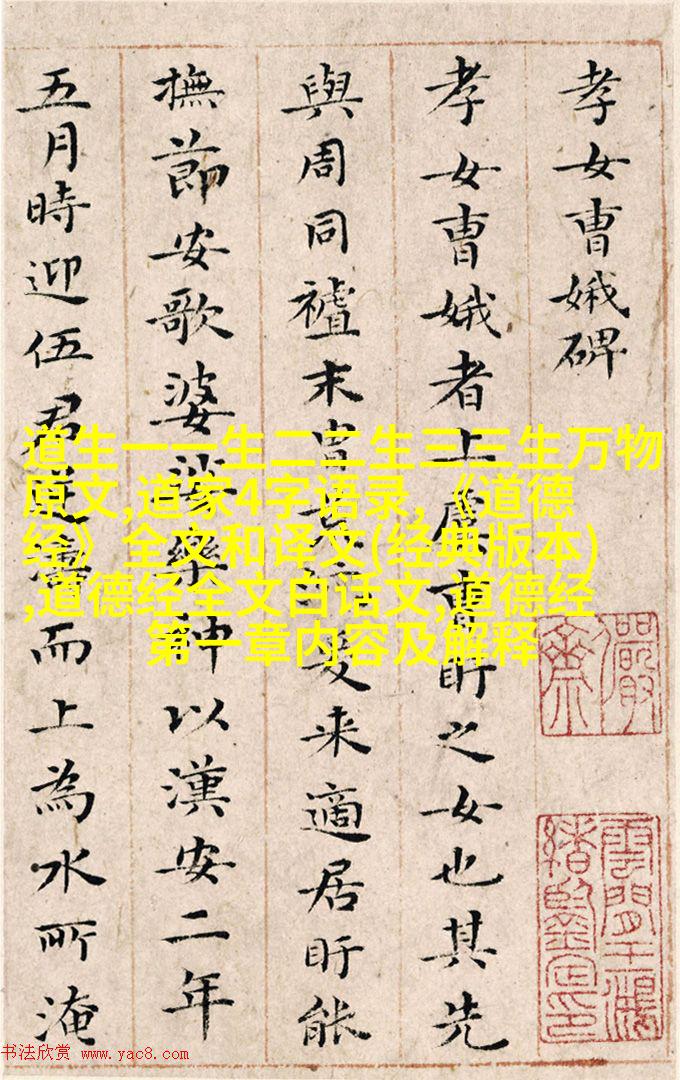 孝女曹娥碑
孝女曹娥者上虞曹盱之女也其先
與周同末胄爰来適居盱能
撫節安歌婆娑樂神以漢安二年
五月時迎伍君逆濤而上為水所淹
道生一一生二二生三三生万物
原文,道家4字语录,《道德
经》全文和译文(经典版本)
,道德经全文白话文,道德经
第一章内容及解释
儼齋
雲間王鴻緒鑒定印
书法欣赏 www.yac8.com